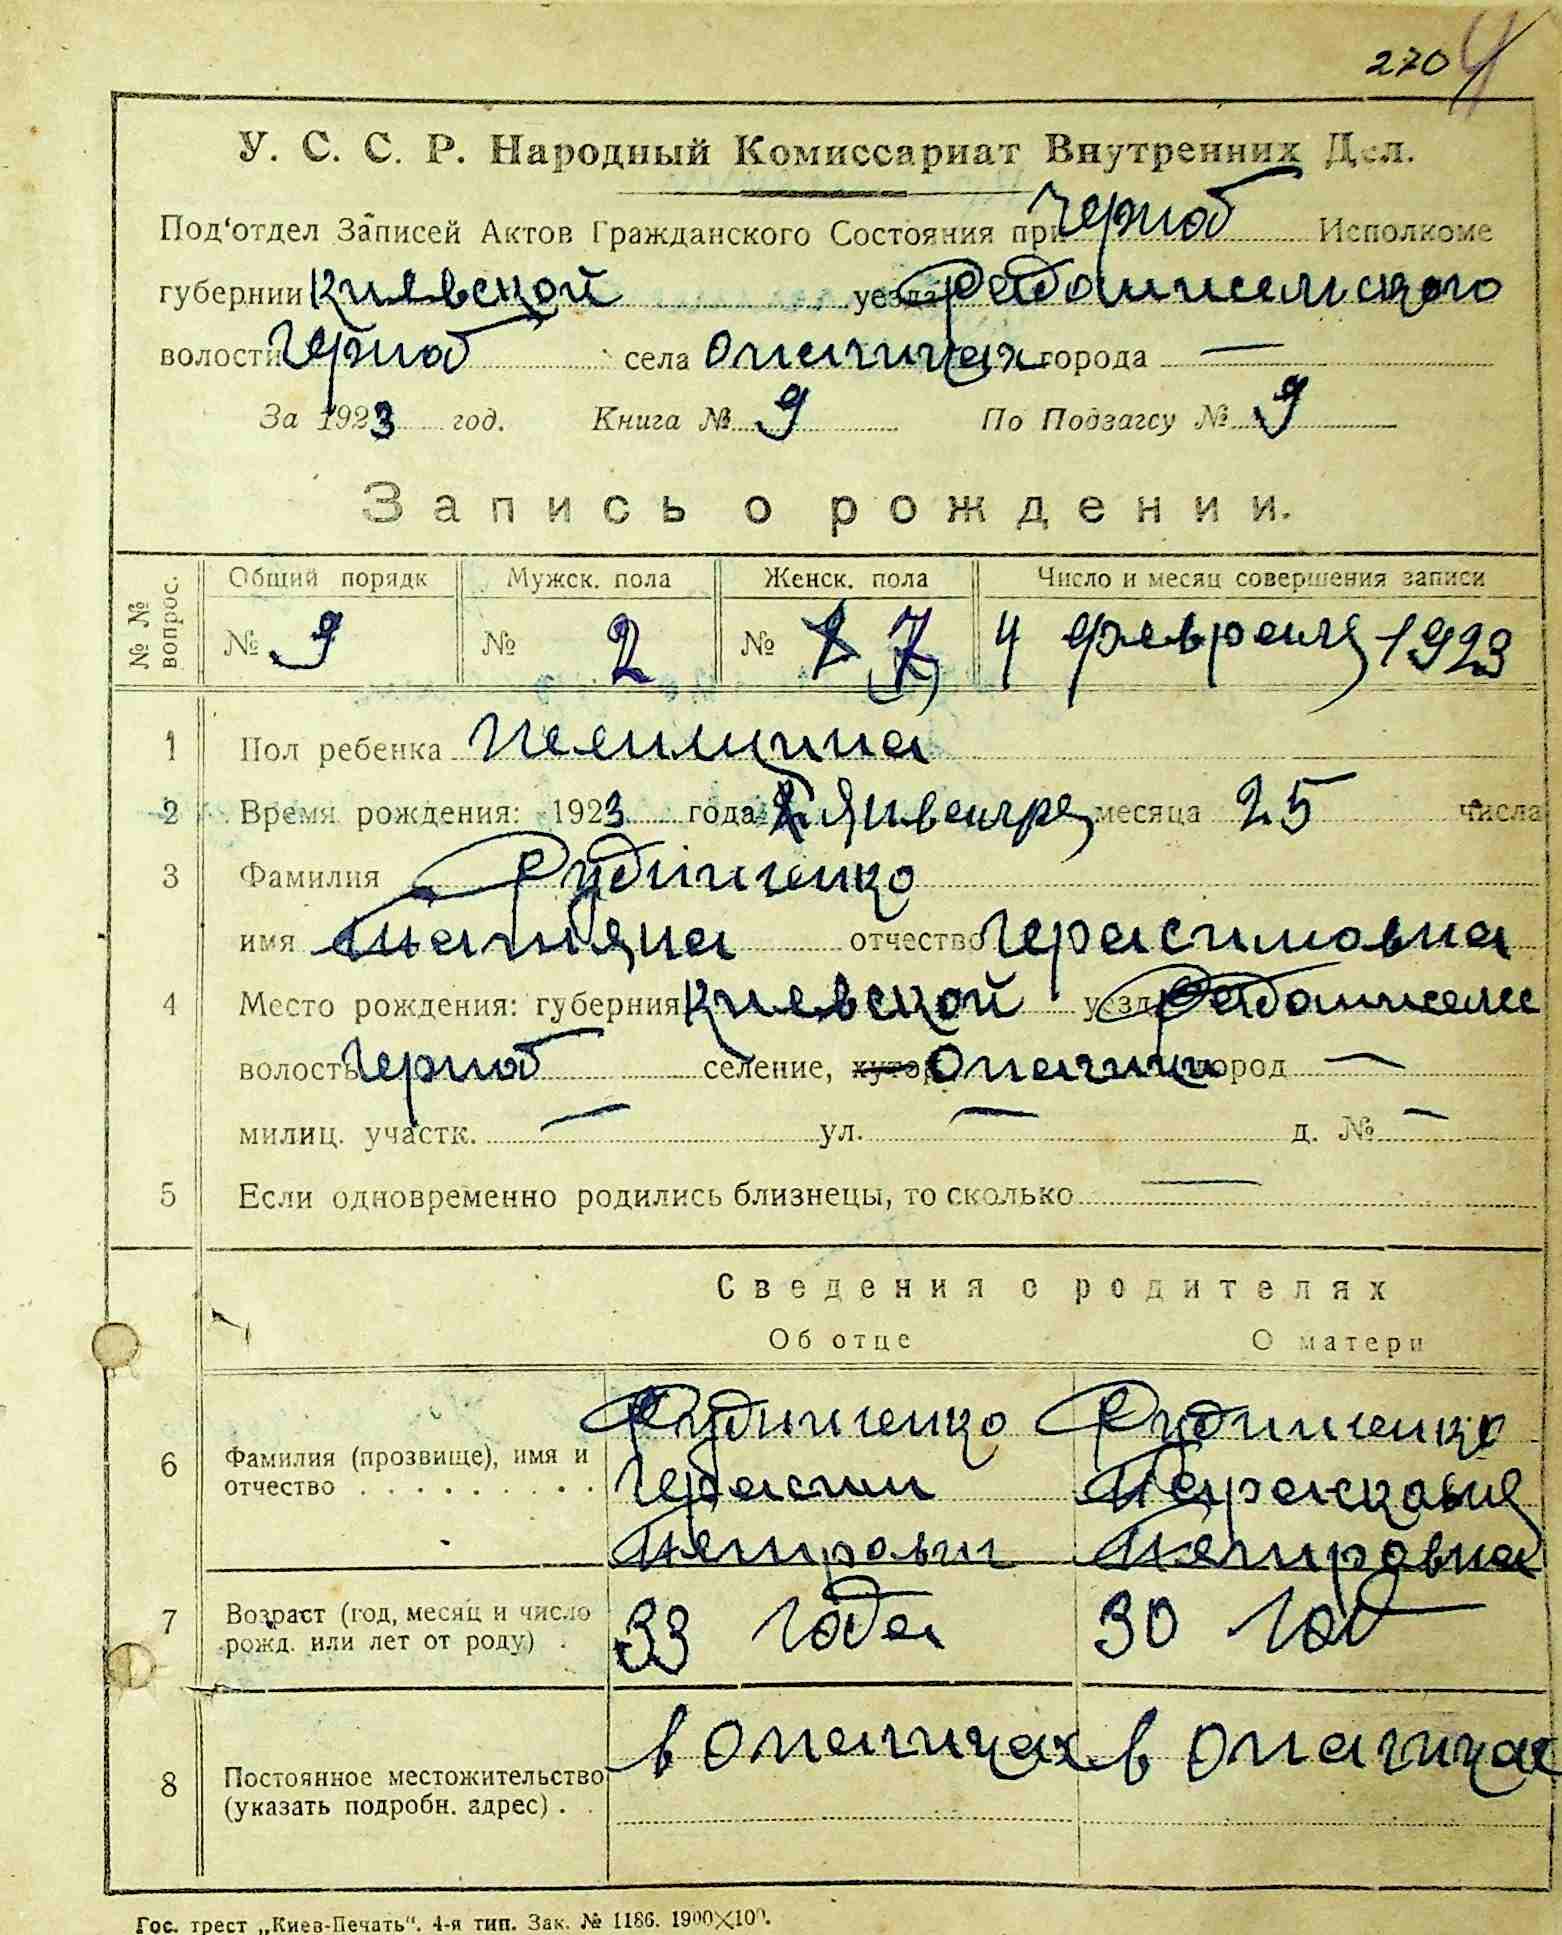 270 4
У. С. С. Р. Народный Комиссариат Внутренних Дел.
Под'отдел Записей Актов Гражданского Состояния при Черноб Исполкоме
губернии Киевской уезда Радомисельского
волости Черноб села Опачичах города —
За 1923 год. Книга № 9 По Подзагсу № 9
Запись о рождении.
№ № вопрос. Общий порядк Мужск. пола Женск. пола Число и месяц совершения записи
№ 9 № 2 № 7 4 февраля 1923
1 Пол ребенка Женщина
2 Время рождения: 1923 года Январе месяца 25 числа
3 Фамилия Рудниченко
имя Татьяна отчество Герасимовна
4 Место рождения: губерния Киевской уезд Радомисельс
волость Черноб селение, хутор Опачичи город —
милиц. участк. — ул. — д. № —
5 Если одновременно родились близнецы, то сколько —
Сведения о родителях
Об отце О матери
6 Фамилия (прозвище), имя и отчество . . . . . . . . . .
Рудниченко Рудниченко
Герасим Парасковья
Петрович Петровна
7 Возраст (год, месяц и число рожд. или лет от роду) . 33 года 30 год
8 Постоянное местожительство (указать подробн. адрес) . . в Опачичах в Опачичах
Гос. трест „Киев-Печать“. 4-я тип. Зак. № 1186. 1900×100.